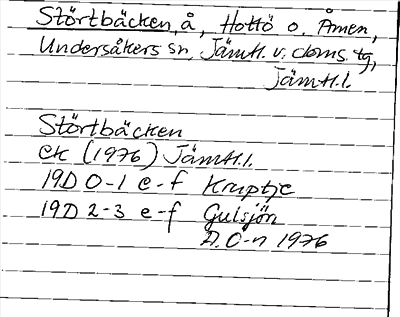 Störtbäcken, å, Hottö o. Åmen,
Undersåkers sn, Jämtl. v. doms. tg,
Jämtl. l.
Störtbäcken
ek (1976) Jämtl. l.
19D 0-1 e-f Kruptje
19D 2-3 e-f Gulsjön
A. O-n 1976